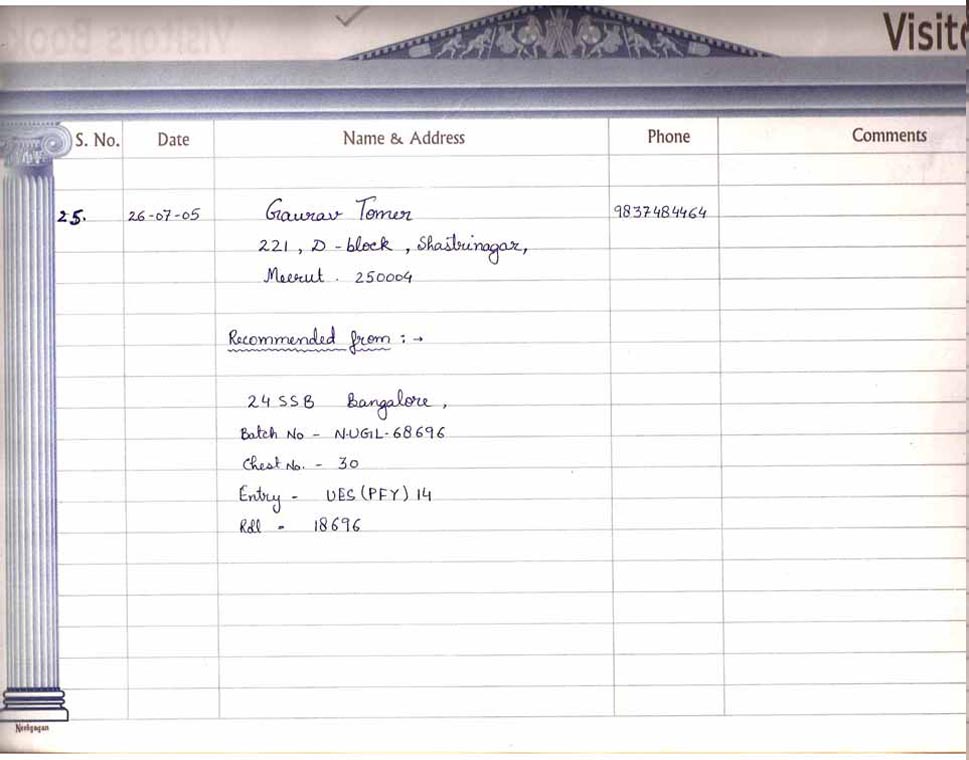 Visitors Book
Visito
S. No. Date Name & Address Phone Comments
25. 26-07-05 Gaurav Tomer 9837484464
221, D - block, Shastrinagar,
Meerut. 250004
Recommended from : →
24 SSB Bangalore,
Batch No - N-UGIL-68696
Chest No. - 30
Entry - UES (PFY) 14
Roll - 18696
Neelgagan